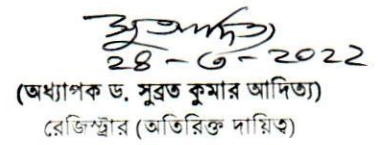 28-৩-2022
(অধ্যাপক ড. সুব্রত কুমার আদিত্য)
রেজিস্ট্রার (অতিরিক্ত দায়িত্ব)